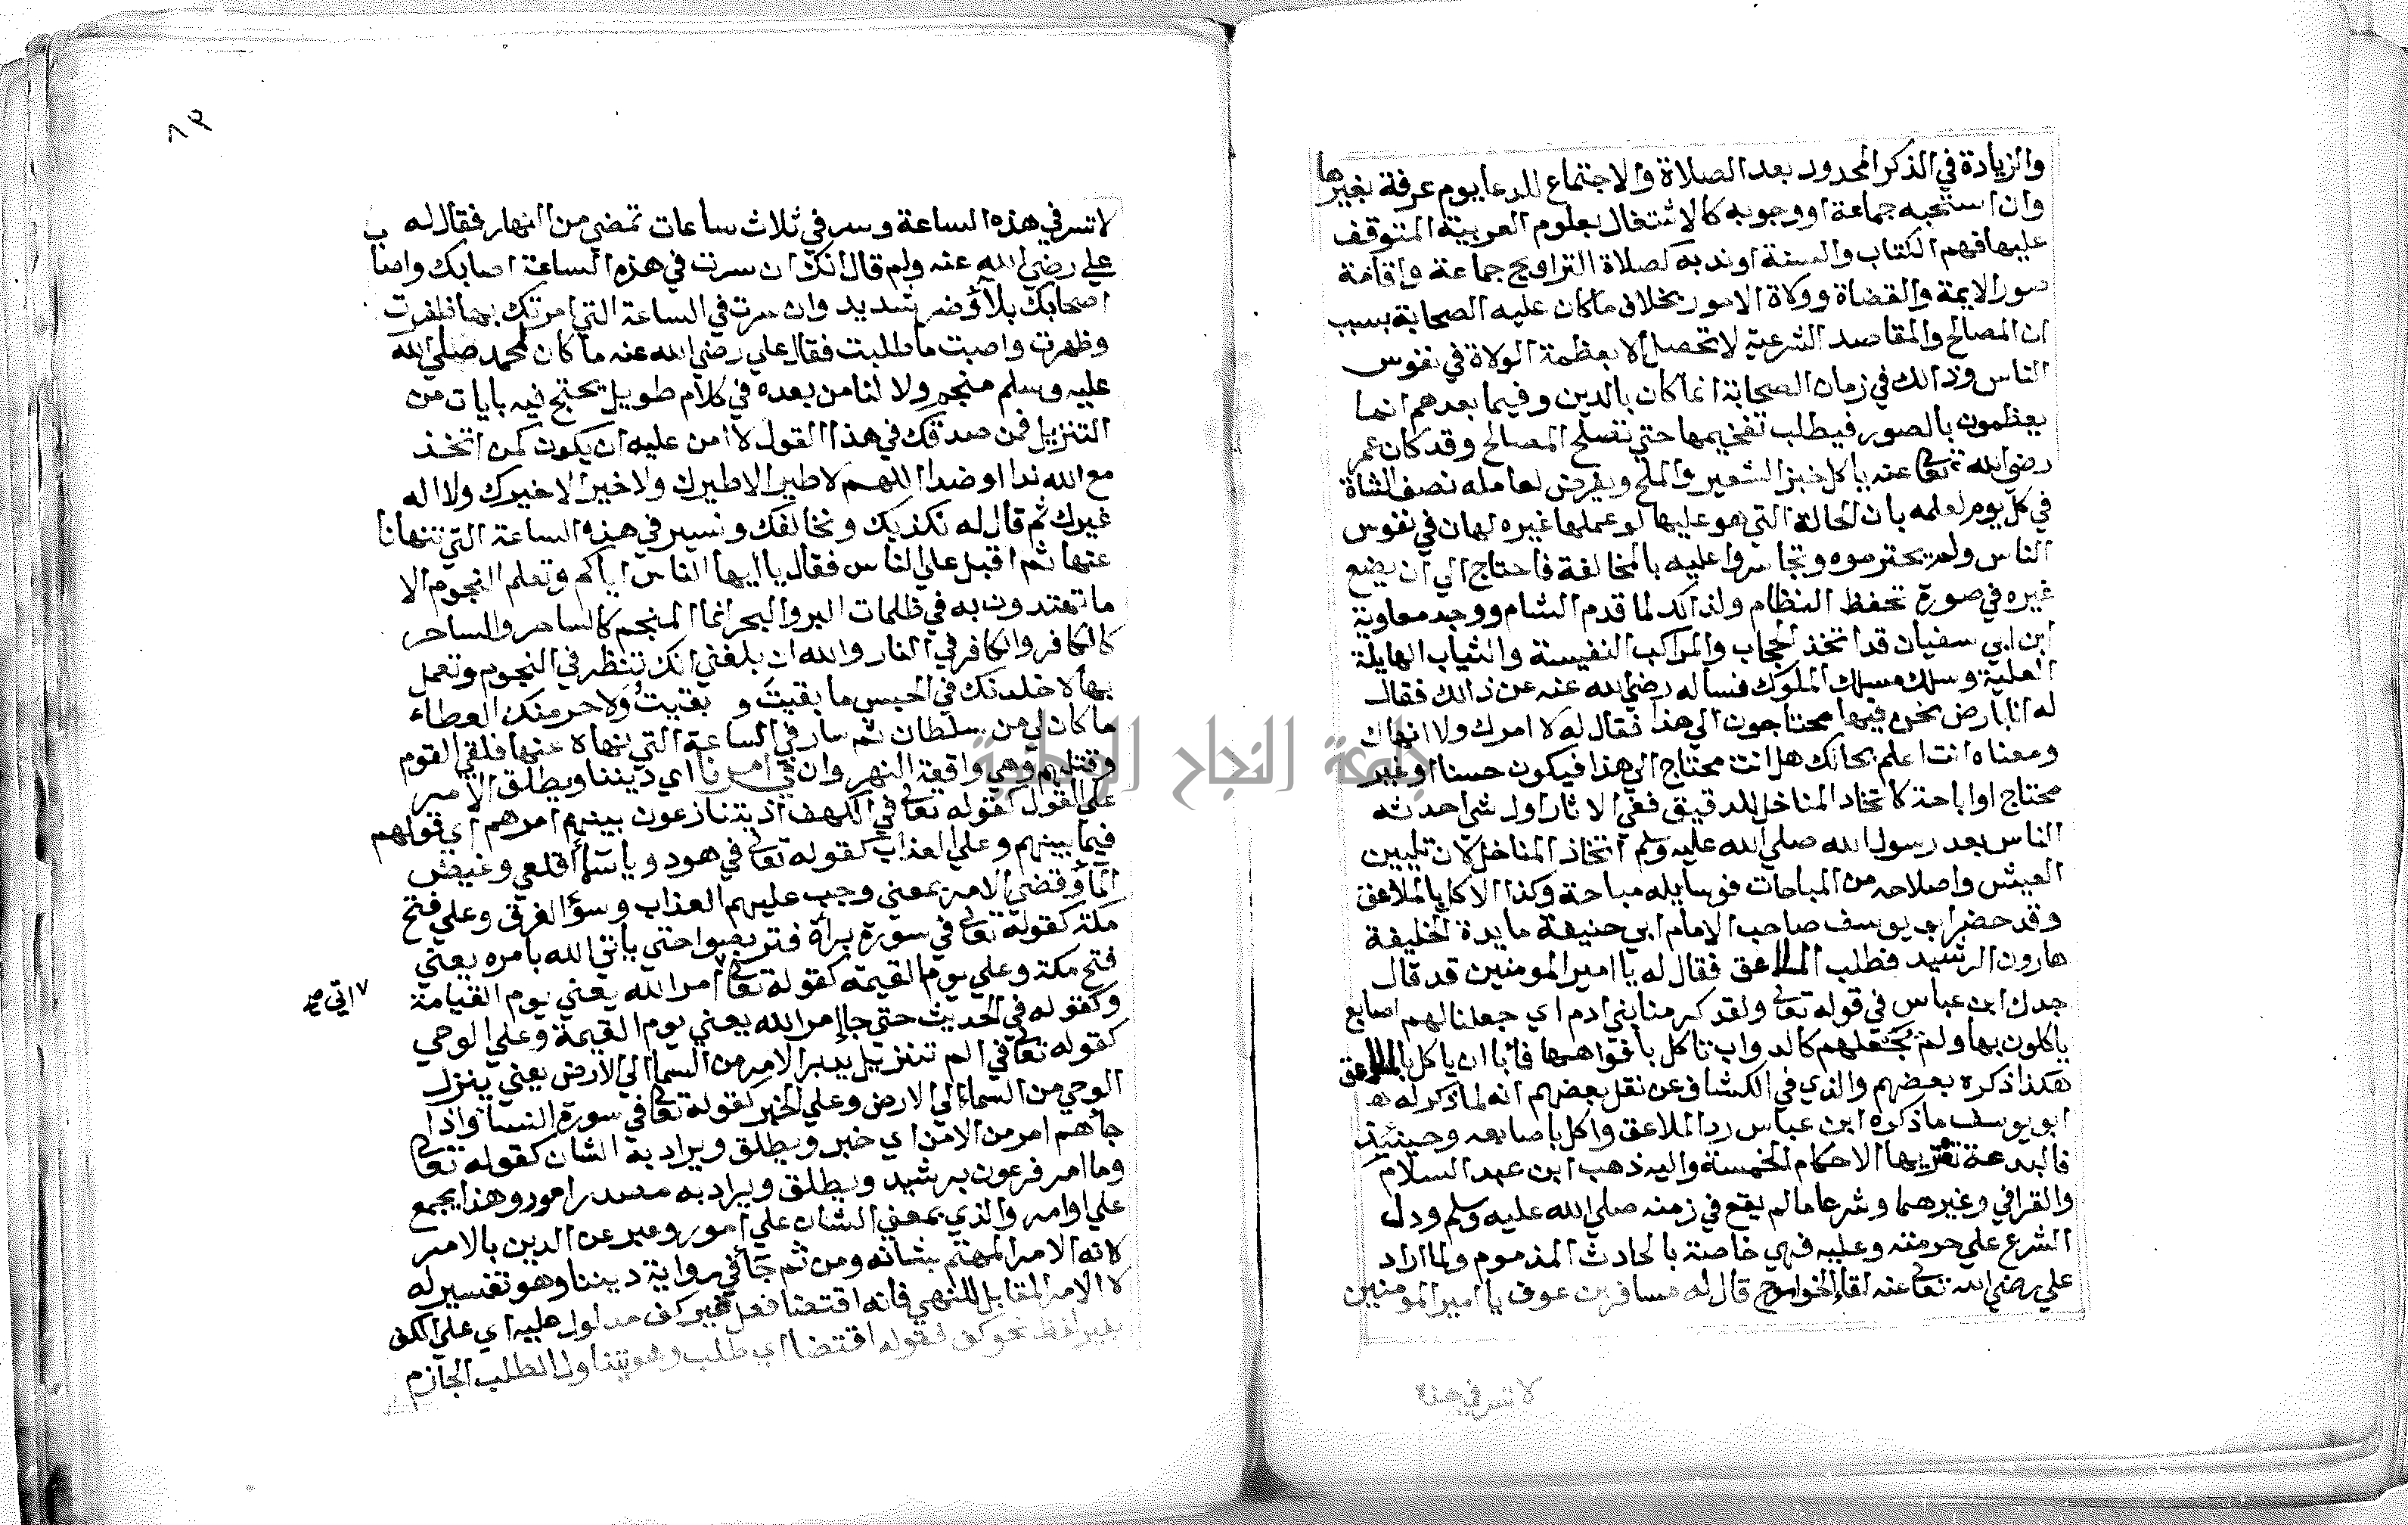 والزيادة في الذكر المحدود بعد الصلاة والاجتماع للدعا يوم عرفة بغيرها
وان استحبه جماعة او وجوبه كالاشتغال بعلوم العربية المتوقف
عليها فهم الكتاب والسنة او ندبه كصلاة التراويح جماعة واقامة
صور الايمة والقضاة وولاة الامور بخلاف ما كان عليه الصحابة بسبب
ان المصالح والمقاصد الشرعية لا تحصل الا بعظمة الولاة في نفوس
الناس وذالك في زمان الصحابة انما كان بالدين وفيما بعدهم انما
يعظمون بالصور فيطلب تفخيمها حتي تصلح المصالح وقد كان عمر
رضي الله تعالى عنه ياكل خبز الشعير والملح ويفرض لعامله نصف الشاة
في كل يوم لعلمه بان الحالة التي هو عليها لو عملها غيره لهان في نفوس
الناس ولم يحترموه وتجاسروا عليه بالمخالفة فاحتاج الي ان يضع
غيره في صورة تحفظ النظام ولذالك لما قدم الشام ووجد معاوية
ابن ابي سفيان قد اتخذ الحجاب والمراكب النفيسة والثياب الهايلة
العلية وسلك مسلك الملوك فساله رضي الله عنه عن ذالك فقال
له انا بارض نحن فيها محتاجون الي هذا فقال له لا امرك ولا انهاك
ومعناه انت اعلم بحالك هل انت محتاج الي هذا فيكون حسنا او غير
محتاج او اباحة كاتخاد المناخل للدقيق ففي الاثار اول شي احدثه
الناس بعد رسول الله صلي الله عليه وسلم اتخاذ المناخل لان تليين
العيش واصلاحه من المباحات فوسايله مباحة وكذا الاكل بالملاعق
وقد حضر ابو يوسف صاحب الامام ابي حنيفة مايدة الخليفة
هارون الرشيد فطلب الملاعق فقال له يا امير المومنين قد قال
جدك ابن عباس في قوله تعالى ولقد كرمنا بني ادم اي جعلنا لهم اصابع
ياكلون بها ولم نجعلهم كالدواب تاكل بافواهها فابا ان ياكل بالملاعق
هكذا ذكره بعضهم والذي في الكشاف عن نقل بعضهم انه لما ذكر له
ابو يوسف ما ذكره ابن عباس رد الملاعق واكل باصابعه وحينئذ
فالبدعة تعتريها الاحكام الخمسة واليه ذهب ابن عبد السلام
والقرافي وغيرهما وشرعا ما لم يقع في زمنه صلي الله عليه وسلم ودل
الشرع علي حرمته وعليه فهي خاصة بالحادث المذموم ولما اراد
علي رضي الله تعالى عنه لقاء الخوارج قال له مسافر بن عوف يا امير المومنين
لا تسر في هذه
٨٣
لا تسر في هذه الساعة وسر في ثلاث ساعات تمضي من النهار فقال له
علي رضي الله عنه ولم قال انك ان سرت في هذه الساعة اصابك واصا
اصحابك بلاؤ ضر شديد وان سرت في الساعة التي امرتك بها فلفرت
وظهرت واصبت ما طلبت فقال علي رضي الله عنه ما كان لمحمد صلي الله
عليه وسلم منجم ولا لنا من بعده في كلام طويل يحتج فيه بايات من
التنزيل فمن صدقك في هذا القول لا امن عليه ان يكون كمن اتخذ
مع الله ندا او ضدا اللهم لا طير الا طيرك ولا خير الا خيرك ولا اله
غيرك ثم قال له نكذبك ونخالفك ونسير في هذه الساعة التي تنهانا
عنها ثم اقبل علي الناس فقال يا ايها الناس اياكم وتعلم النجوم الا
ما تهتدون به في ظلمات البر والبحر انما المنجم كالساحر والساحر
كالكافر والكافر في النار والله ان بلغني انك تنظر في النجوم وتعمل
بها لاخلدنك في الحبس ما بقيتَ و بقيتُ ولاحرمنك العطاء
ما كان لي من سلطان ثم سار في الساعة التي نهاه عنها فلقي القوم
وقتلهم وهي واقعة النهروان في امرنا اي ديننا ويطلق الامر
علي القول كقوله تعالى في الكهف اذ يتنازعون بينهم امرهم اي قولهم
فيما بينهم وعلي العذاب كقوله تعالى في هود ويا سمآ اقلعي وغيض
المآ وقضي الامر بمعني وجب عليهم العذاب وسؤ الغرق وعلي فتح
مكة كقوله تعالى في سورة برأة فتربصوا حتي ياتي الله بامره يعني
فتح مكة وعلي يوم القيمة كقوله تعالى ٧ امر الله يعني يوم القيامة
٧ اتي صح
وكقوله في الحديث حتي جا امر الله يعني يوم القيمة وعلي الوحي
كقوله تعالى في الم تنزيل يدبر الامر من السما الي الارض يعني ينزل
الوحي من السماء الي الارض وعلي الخبر كقوله تعالى في سورة النسا واذا
جأهم امر من الامن اي خبر ويطلق ويراد به الشان كقوله تعالى
وما امر فرعون برشيد ويطلق ويراد به مصدر امور وهذا يجمع
علي اوامر والذي بمعني الشان علي امور وعبر عن الدين بالامر
لانه الامر المهتم بشانه ومن ثم جآ في رواية ديننا وهو تفسير له
لا الامر المقابل للنهي فانه اقتضا فعل غير كف مدلول عليه اي علي الكف
بغير لفظ نحو كف فقوله اقتضا اي طلب وهو يتناول الطلب الجازم
جامعة النجاح الوطنية